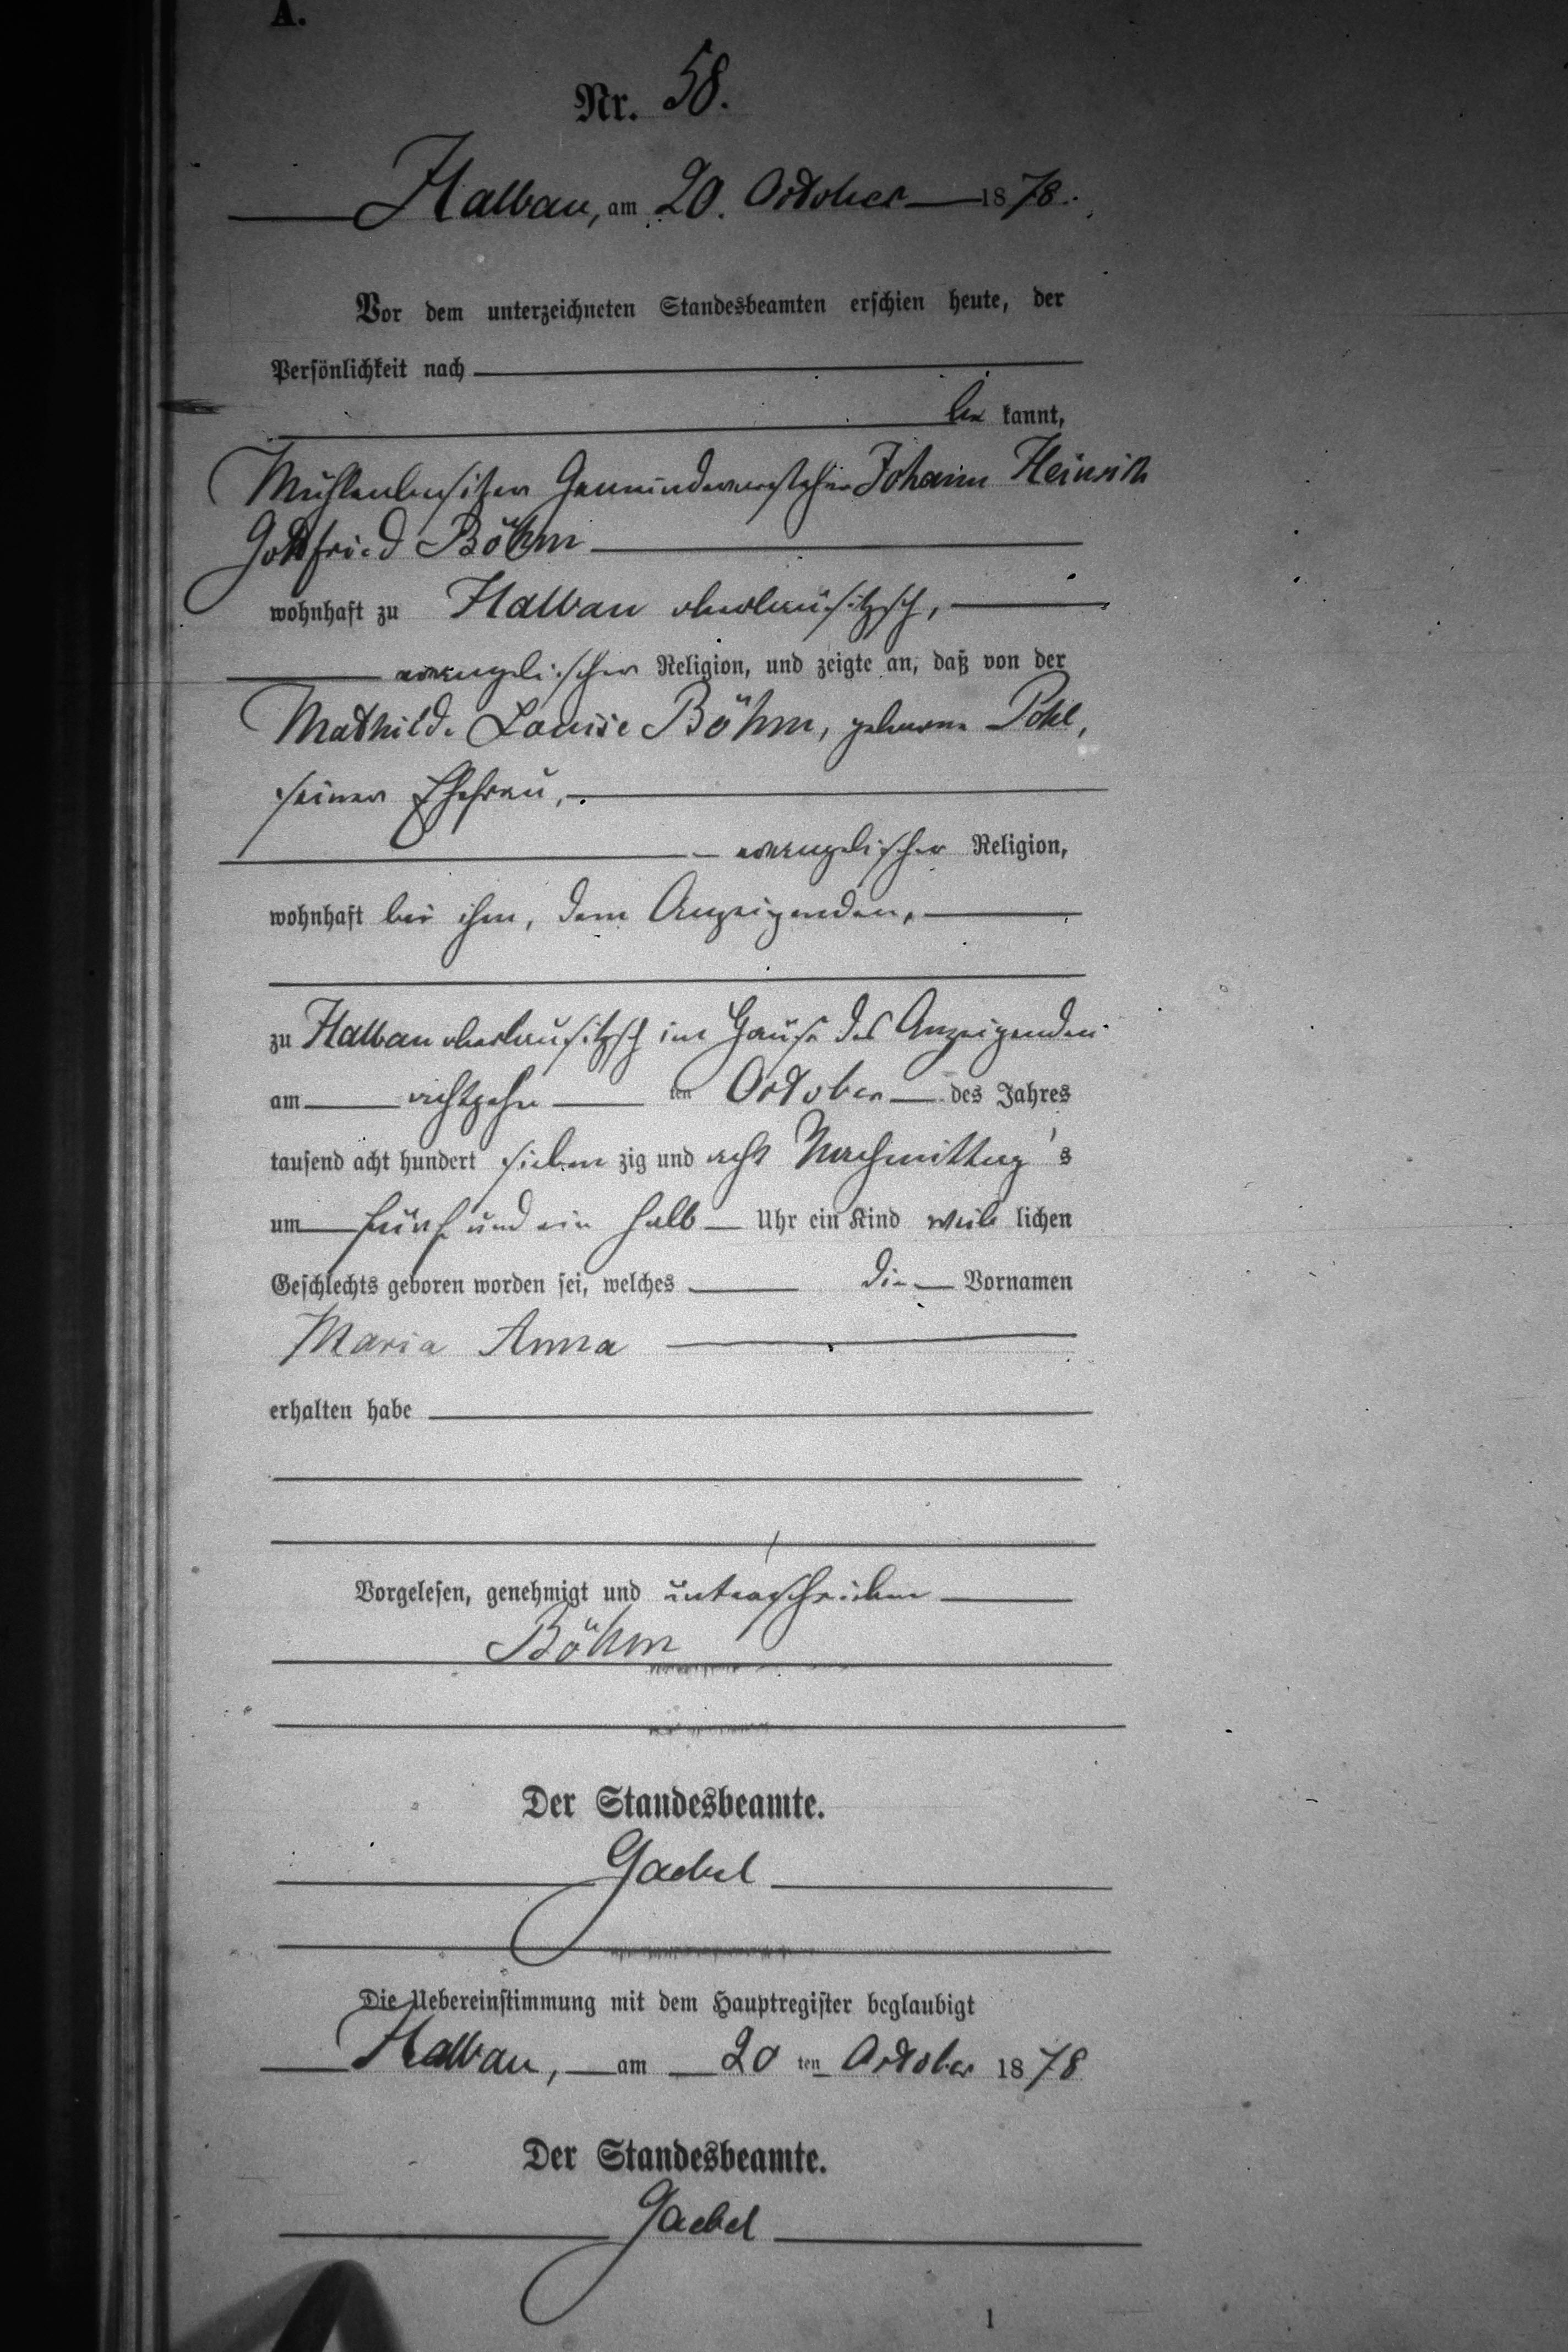 A.
Nr. 58.
Halbau, am 20. October 1878.
Vor dem unterzeichneten Standesbeamten erschien heute, der
Persönlichkeit nach
be kannt,
Mühlenbesitzer Gemeindevorsteher Johann Heinrich
Gottfried Böhm
wohnhaft zu Halbau oberlausitzsch,
evangelischer Religion, und zeigte an, daß von der
Mathilde Louise Böhm, geborene Pohl,
seiner Ehefrau,
evangelischer Religion,
wohnhaft bei ihm, dem Anzeigenden,
zu Halbau oberlausitzsch im Hause des Anzeigenden
am achtzehn ten October des Jahres
tausend acht hundert sieben zig und acht Nachmittag's
um fünf und ein halb Uhr ein Kind weib lichen
Geschlechts geboren worden sei, welches die Vornamen
Maria Anna
erhalten habe
Vorgelesen, genehmigt und unterschrieben
Böhm
Der Standesbeamte.
Gaebel
Die Uebereinstimmung mit dem Hauptregister beglaubigt
Halbau, am 20 ten October 1878
Der Standesbeamte.
Gaebel
1